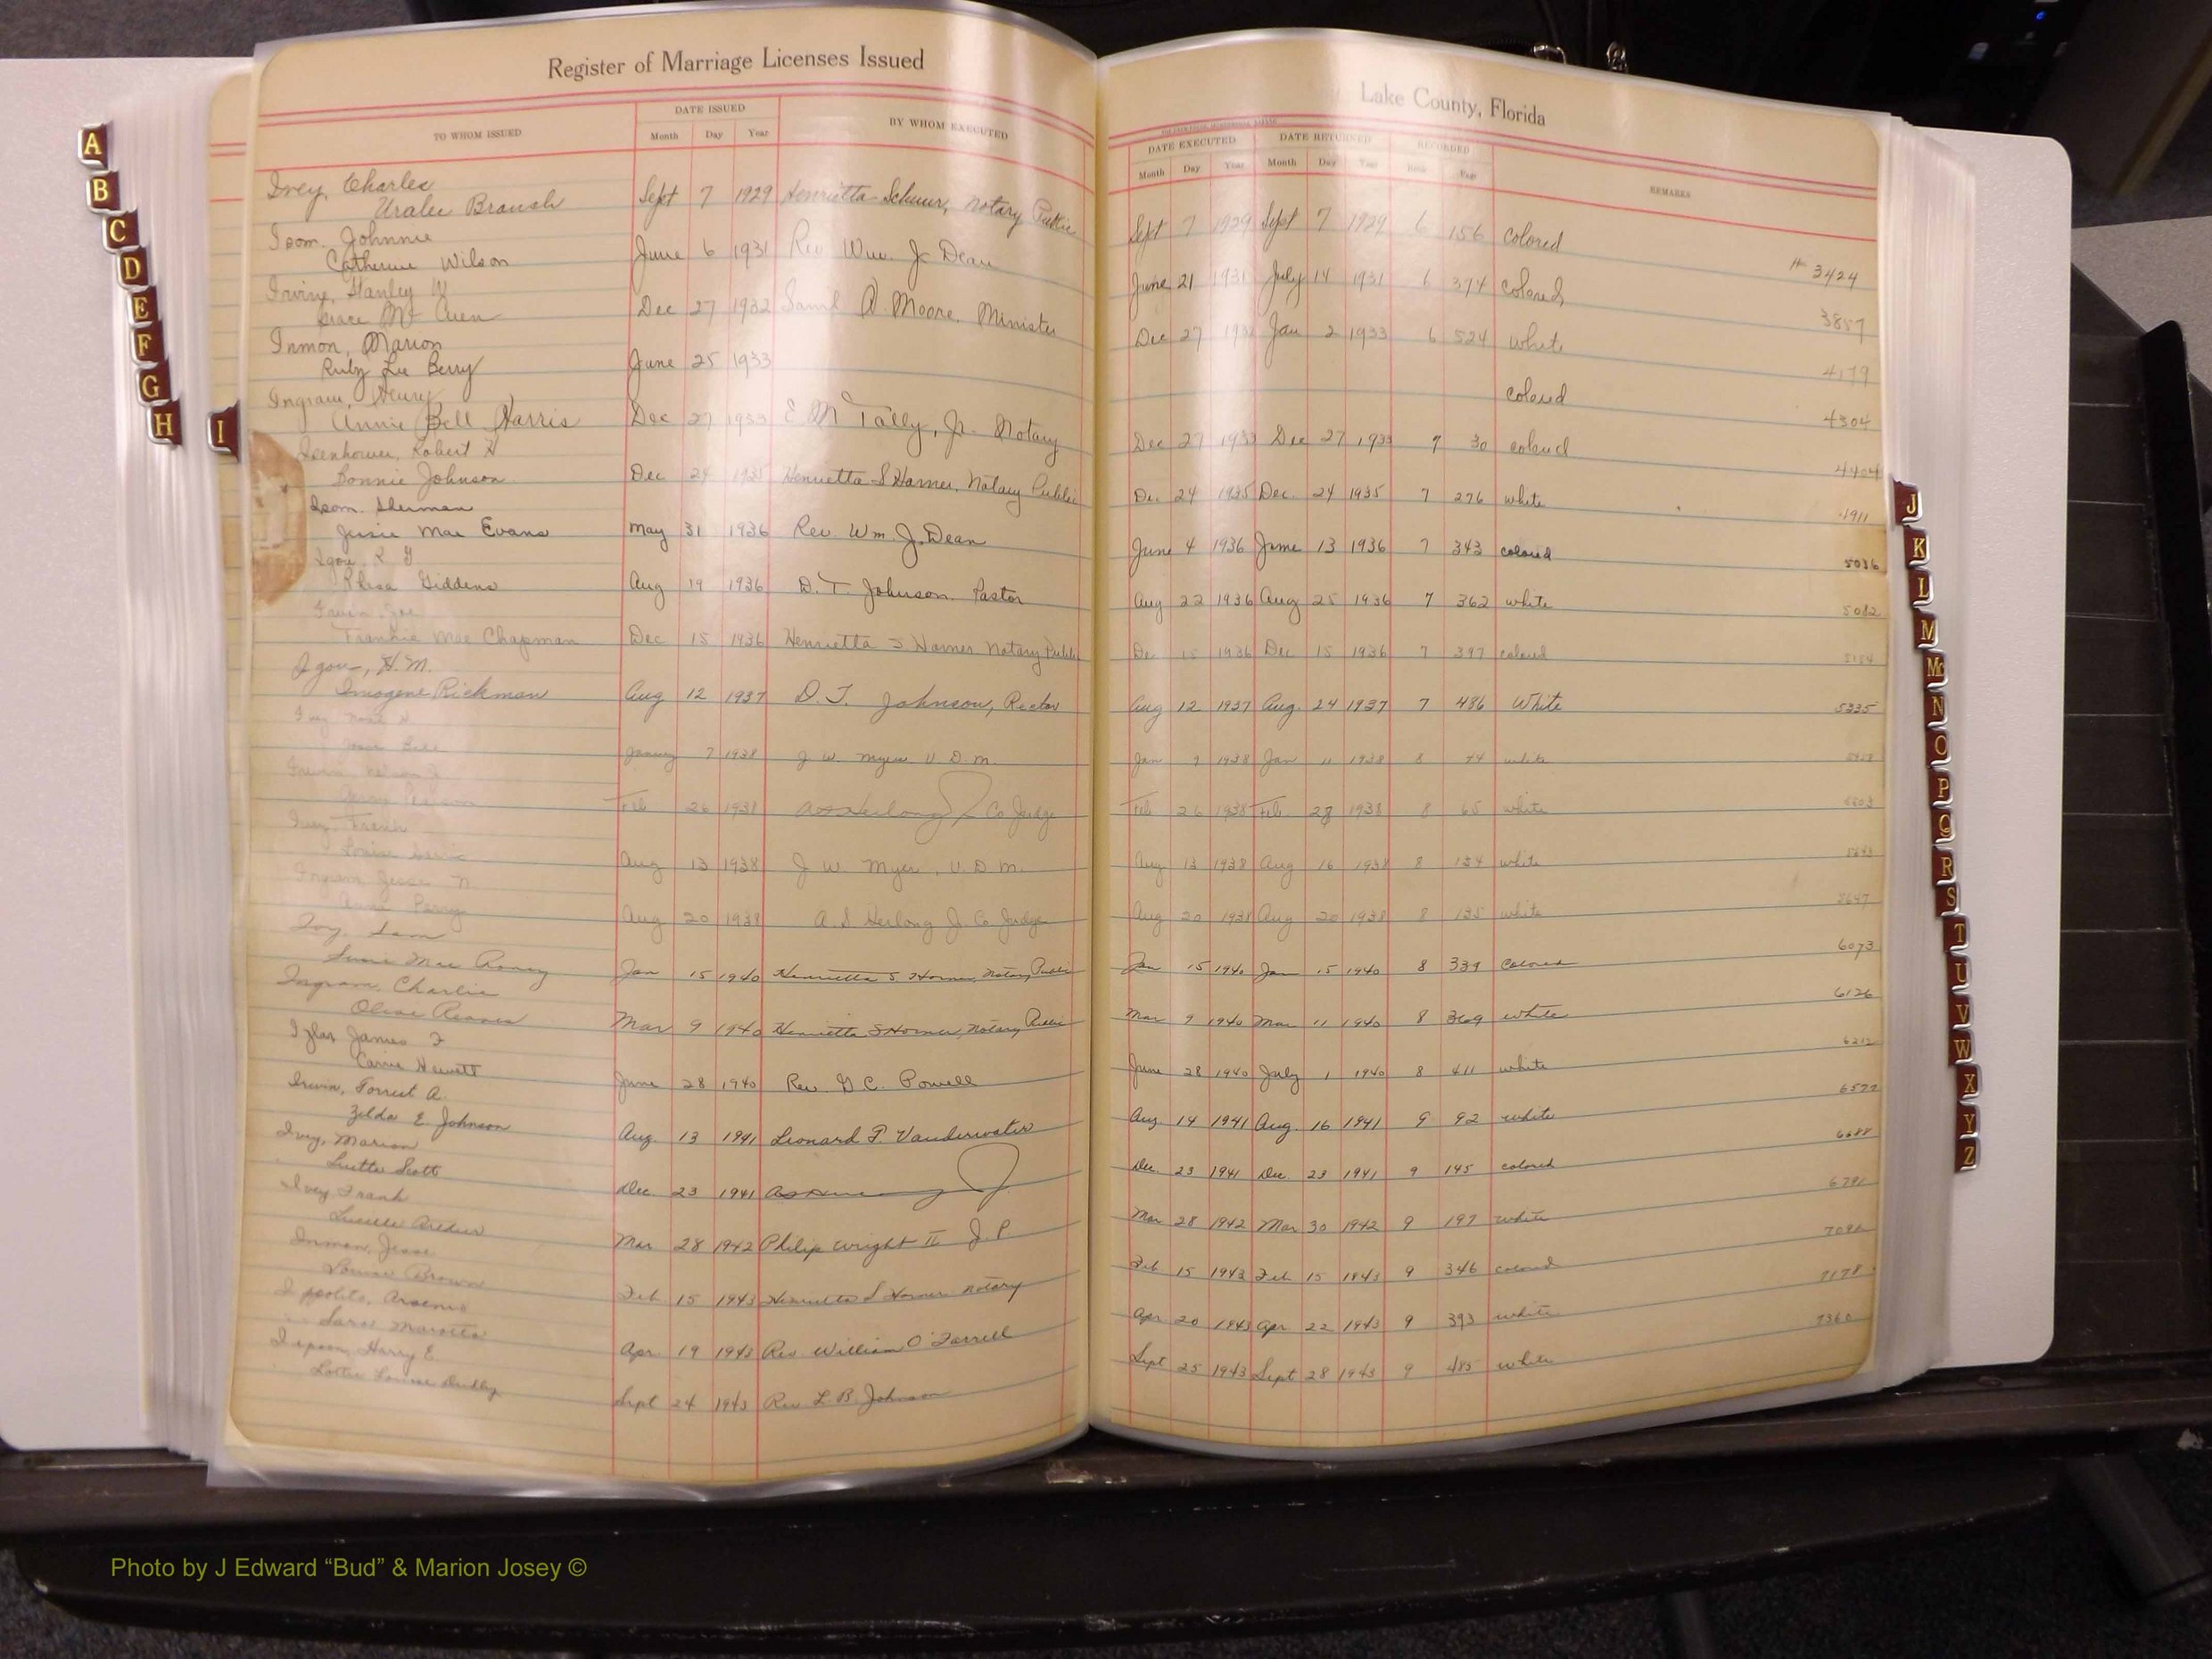 Register of Marriage Licenses Issued
Lake County, Florida
TO WHOM ISSUED DATE ISSUED BY WHOM EXECUTED
Month Day Year
DATE EXECUTED DATE RETURNED RECORDED REMARKS
Month Day Year Month Day Year Book Page
Ivey, Charles
Uralee Branch Sept 7 1929 Henrietta Notary Public Sept 7 1929 Sept 7 1929 6 156 colored # 3424
Isom, Johnnie
Catherine Wilson June 6 1931 Rev Wm. J. Dean June 21 1931 July 14 1931 6 374 colored 3857
Irvine, Stanley W
Grace Mc Dec 27 1932 Saml A. Moore, Minister Dec 27 1932 Jan 2 1933 6 524 white 4179
Inmon, Marion
Ruby Lee Berry June 25 1933 colored 4304
Ingram, Henry
Annie Bell Harris Dec 27 1933 E M Tally, Jr. Notary Dec 27 1933 Dec 27 1933 7 30 colored 4404
Isenhower, Robert H
Bonnie Johnson Dec 24 1935 Henrietta S Horner, Notary Public Dec 24 1935 Dec. 24 1935 7 276 white 4911
Isom. Sherman
Jessie Mae Evans May 31 1936 Rev. Wm. J. Dean June 4 1936 June 13 1936 7 343 colored 5036
Igou, R G
Giddens Aug 19 1936 D. T. Johnson. Pastor Aug 22 1936 Aug 25 1936 7 362 white 5082
Joe
Frankie Mae Chapman Dec 15 1936 Henrietta S Horner Notary Public Dec 15 1936 Dec 15 1936 7 397 colored
Igou, H. M.
Imogene Rickman Aug 12 1937 D. T. Johnson, Rector Aug 12 1937 Aug. 24 1937 7 486 White 5335
January 7 1938 J W. Myers V. D. M. Jan 9 1938 Jan 11 1938 8 44 white
Feb 26 1938 Co Judge Feb 26 1938 Feb. 28 1938 8 65 white
Ivey, Frank
Louise Aug 13 1938 J W. Myer, V. D. M. Aug 13 1938 Aug 16 1938 8 134 white
Ingram, Jesse N.
Perry Aug 20 1938 A. S Herlong J. Co Judge Aug 20 1938 Aug 20 1938 8 135 white 5647
Ivy, Sam
Mae Jan 15 1940 Henrietta S. Horner, Notary Public Jan 15 1940 Jan 15 1940 8 339 colored 6073
Ingram, Charlie
Olive Reaves Mar 9 1940 Henrietta S Horner, Notary Public Mar 9 1940 Mar 11 1940 8 369 white 6126
Izlar, James F
Carrie Hewett June 28 1940 Rev. G C. Powell June 28 1940 July 1 1940 8 411 white 6212
Irwin, Forrest A.
Zelda E. Johnson Aug. 13 1941 Leonard P. Vanderwater Aug 14 1941 Aug. 16 1941 9 92 white 6577
Ivey, Marion
Scott Dec. 23 1941 Dec. 23 1941 Dec. 23 1941 9 145 colored 6688
Ivey, Frank
Lucille Mar 28 1942 Philip Wright II J. P. Mar 28 1942 Mar 30 1942 9 197 white 6791
Inman, Jesse
Louise Brown Feb. 15 1943 Henrietta S Horner Notary Feb 15 1943 Feb. 15 1943 9 346 colored
Ippolito, Arsenio
Sara Marotta Apr. 19 1943 Rev. William O'Farrell Apr 20 1943 Apr. 22 1943 9 393 white 7178
Harry E
Lottie Louise Dudley Sept 24 1943 Rev L. B. Johnson Sept 25 1943 Sept 28 1943 9 485 white 7360
A
B
C
D
E
F
G
H
I
J
K
L
M
Mc
N
O
P
Q
R
S
T
U
V
W
X
Y
Z
Photo by J Edward “Bud” & Marion Josey ©